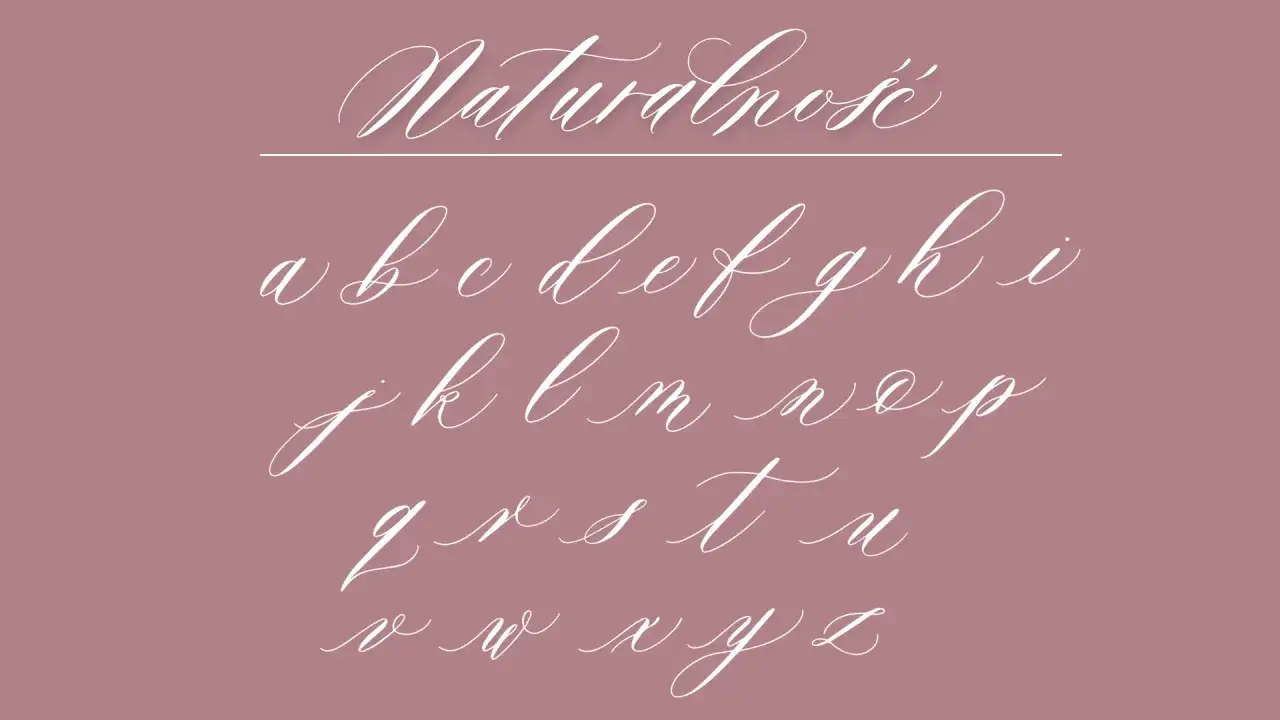 Naturalność
a b c d e f g h i
j k l m n o p
q r s t u
v w x y z